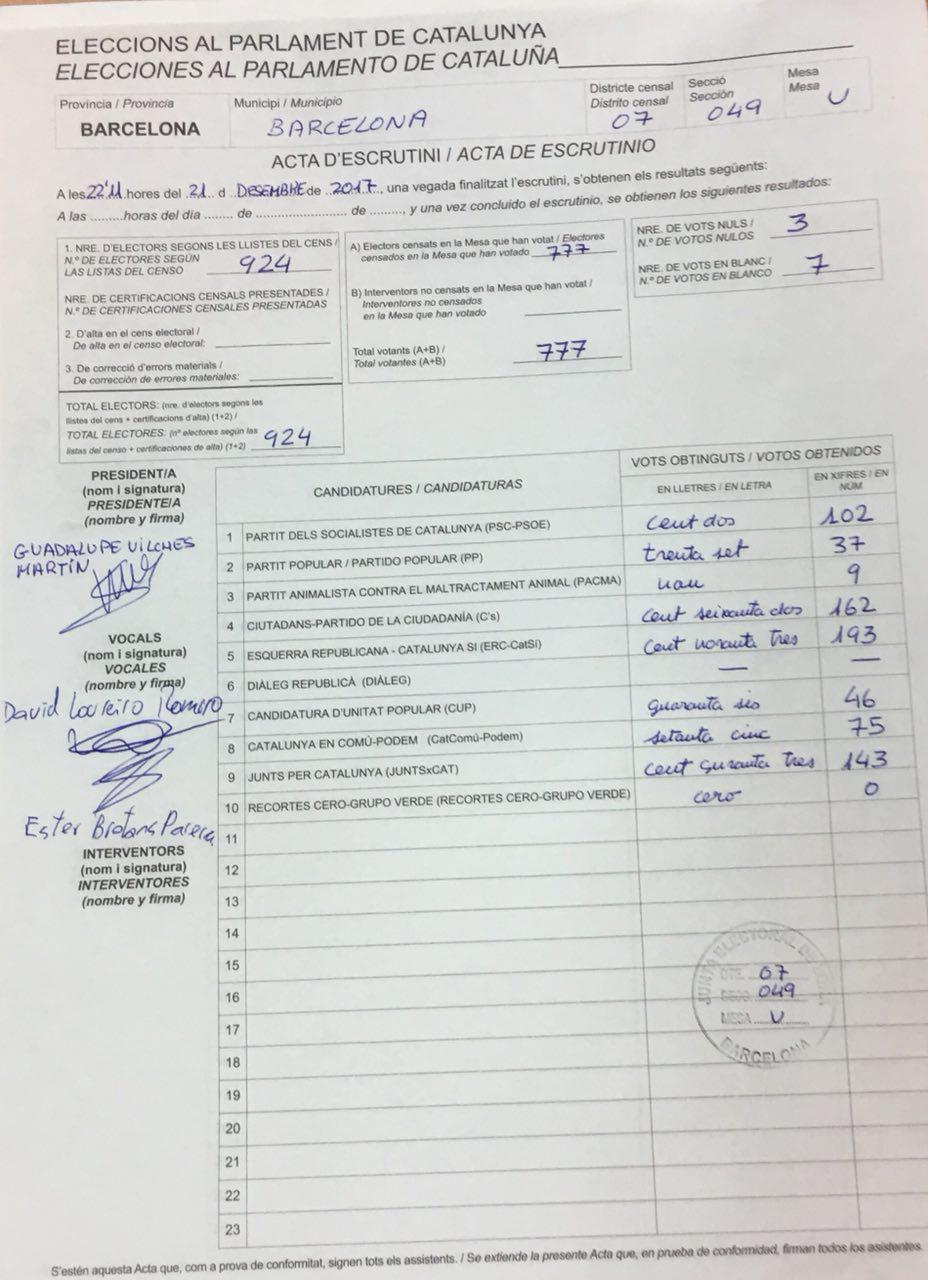 ELECCIONS AL PARLAMENT DE CATALUNYA
ELECCIONES AL PARLAMENTO DE CATALUÑA
Provincia / Provincia
BARCELONA
Municipi / Municipio
BARCELONA
Districte censal
Distrito censal
07
Secció
Sección
049
Mesa
Mesa
U
ACTA D'ESCRUTINI / ACTA DE ESCRUTINIO
A les 22'11 hores del 21 d DESEMBRE de 2017, una vegada finalitzat l'escrutini, s'obtenen els resultats següents:
A las .........horas del día ........ de ......................... de ........., y una vez concluido el escrutinio, se obtienen los siguientes resultados:
1. NRE. D'ELECTORS SEGONS LES LLISTES DEL CENS /
N.º DE ELECTORES SEGÚN
LAS LISTAS DEL CENSO 924
NRE. DE CERTIFICACIONS CENSALS PRESENTADES /
N.º DE CERTIFICACIONES CENSALES PRESENTADAS
2. D'alta en el cens electoral /
De alta en el censo electoral:
3. De correcció d'errors materials /
De corrección de errores materiales:
TOTAL ELECTORS: (nre. d'electors segons les
llistes del cens + certificacions d'alta) (1+2) /
TOTAL ELECTORES: (nº electores según las
listas del censo + certificaciones de alta) (1+2) 924
A) Electors censats en la Mesa que han votat / Electores
censados en la Mesa que han votado 777
B) Interventors no censats en la Mesa que han votat /
Interventores no censados
en la Mesa que han votado
Total votants (A+B) /
Total votantes (A+B) 777
NRE. DE VOTS NULS /
N.º DE VOTOS NULOS 3
NRE. DE VOTS EN BLANC /
N.º DE VOTOS EN BLANCO 7
PRESIDENT/A
(nom i signatura)
PRESIDENTE/A
(nombre y firma)
GUADALUPE VILCHES
MARTÍN
VOCALS
(nom i signatura)
VOCALES
(nombre y firma)
David Loureiro Romero
Ester Brotons Parera
INTERVENTORS
(nom i signatura)
INTERVENTORES
(nombre y firma)
CANDIDATURES / CANDIDATURAS
VOTS OBTINGUTS / VOTOS OBTENIDOS
EN LLETRES / EN LETRA
EN XIFRES / EN
NÚM
1 PARTIT DELS SOCIALISTES DE CATALUNYA (PSC-PSOE) cent dos 102
2 PARTIT POPULAR / PARTIDO POPULAR (PP) trenta set 37
3 PARTIT ANIMALISTA CONTRA EL MALTRACTAMENT ANIMAL (PACMA) nau 9
4 CIUTADANS-PARTIDO DE LA CIUDADANÍA (C's) cent seixanta dos 162
5 ESQUERRA REPUBLICANA - CATALUNYA SI (ERC-CatSí) cent noranta tres 193
6 DIÀLEG REPUBLICÀ (DIÀLEG) — —
7 CANDIDATURA D'UNITAT POPULAR (CUP) guaranta sis 46
8 CATALUNYA EN COMÚ-PODEM (CatComú-Podem) setanta cinc 75
9 JUNTS PER CATALUNYA (JUNTSxCAT) cent guranta tres 143
10 RECORTES CERO-GRUPO VERDE (RECORTES CERO-GRUPO VERDE) cero 0
11
12
13
14
15
16
17
18
19
20
21
22
23
JUNTA ELECTORAL DE
DTE. 07
SECC. 049
MESA U
BARCELONA
S'estén aquesta Acta que, com a prova de conformitat, signen tots els assistents. / Se extiende la presente Acta que, en prueba de conformidad, firman todos los asistentes.